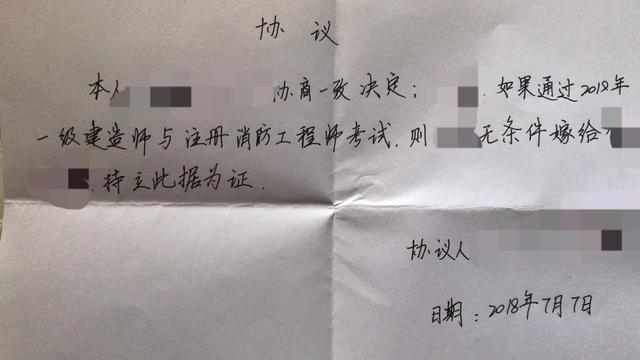 协议
本人 协商一致决定; 如果通过2018年
一级建造师与注册消防工程师考试.则 无条件嫁给
.特立此据为证.
协议人
日期:2018年7月7日